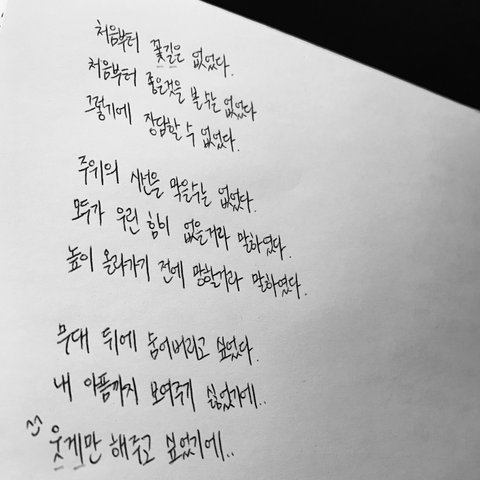 처음부터 꽃길은 없었다.
처음부터 좋은것을 볼 수는 없었다
그렇기에 장담할 수 없었다.
주위의 시선을 막을수는 없었다.
모두가 우린 힘이 없을거라 말하였다.
높이 올라가기 전에 망할거라 말하였다.
무대 뒤에 숨어버리고 싶었다.
내 아픔까지 보여주기 싫었기에..
웃게만 해주고 싶었기에..